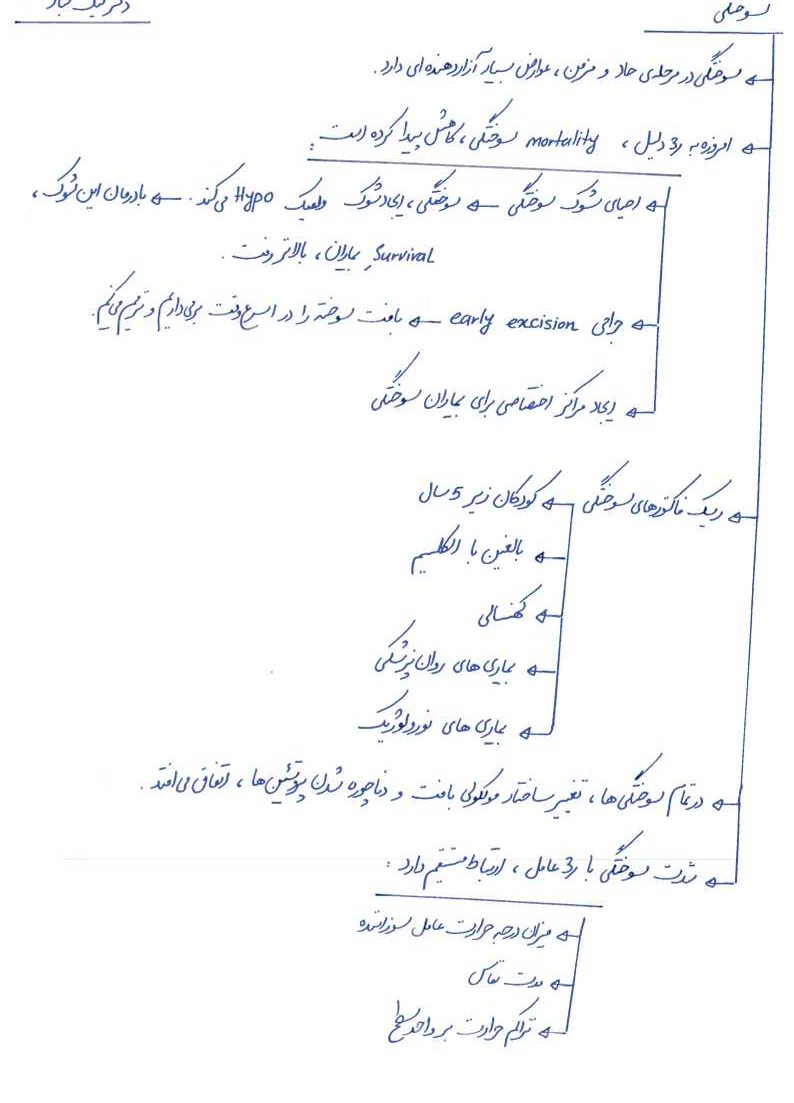 سوختگی
دکتر نیک
سوختگی در مرحله‌ی حاد و مزمن، عوارض بسیار آزاردهنده‌ای دارد.
امروزه به 3 دلیل، mortality سوختگی، کاهش پیدا کرده است:
احیای شوک سوختگی ← سوختگی، ایجاد شوک ولمیک Hypo می‌کند. ← با درمان این شوک،
Survival بیماران، بالاتر رفت.
جراحی early excision ← بافت سوخته را در اسرع وقت برمی‌داریم و ترمیم می‌کنیم.
ایجاد مراکز اختصاصی برای بیماران سوختگی
ریسک فاکتورهای سوختگی ← کودکان زیر 5 سال
بالغین با الکلیسم
کهنسالی
بیماری‌های روان‌پزشکی
بیماری‌های نورولوژیک
در تمام سوختگی‌ها، تغییر ساختار مولکولی بافت و دناچوره شدن پروتئین‌ها، اتفاق می‌افتد.
شدت سوختگی با 3 عامل، ارتباط مستقیم دارد:
میزان درجه حرارت عامل سوزاننده
مدت تماس
تراکم حرارت بر واحد سطح